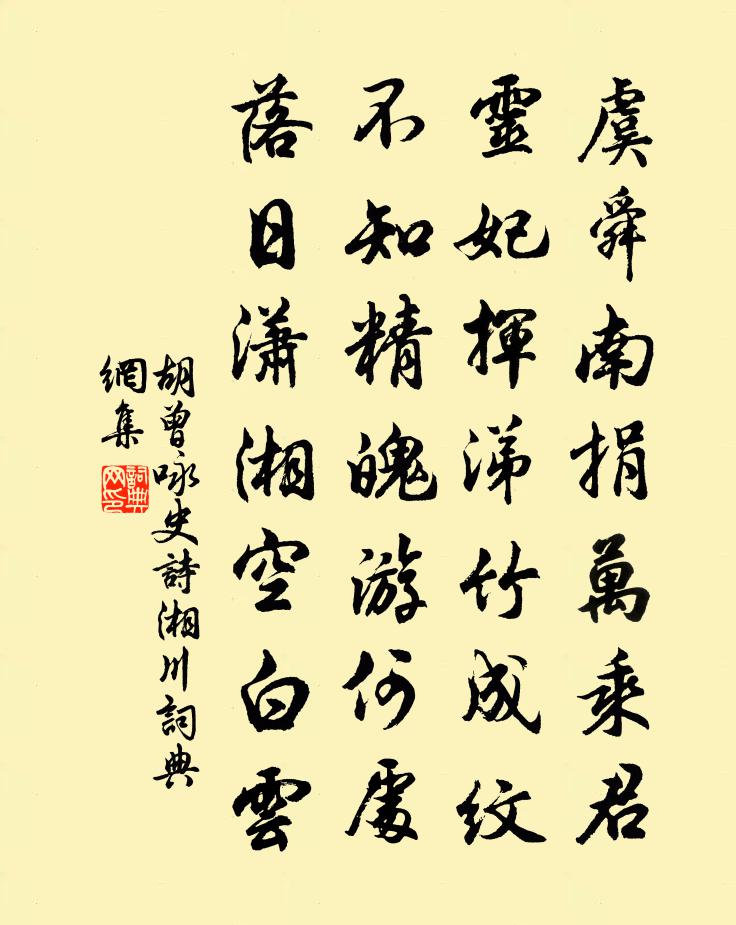 虞舜南捐萬乘君
靈妃揮涕竹成紋
不知精魄游何處
落日瀟湘空白雲
胡曾咏史詩湘川詞典
網集
詞典
网印